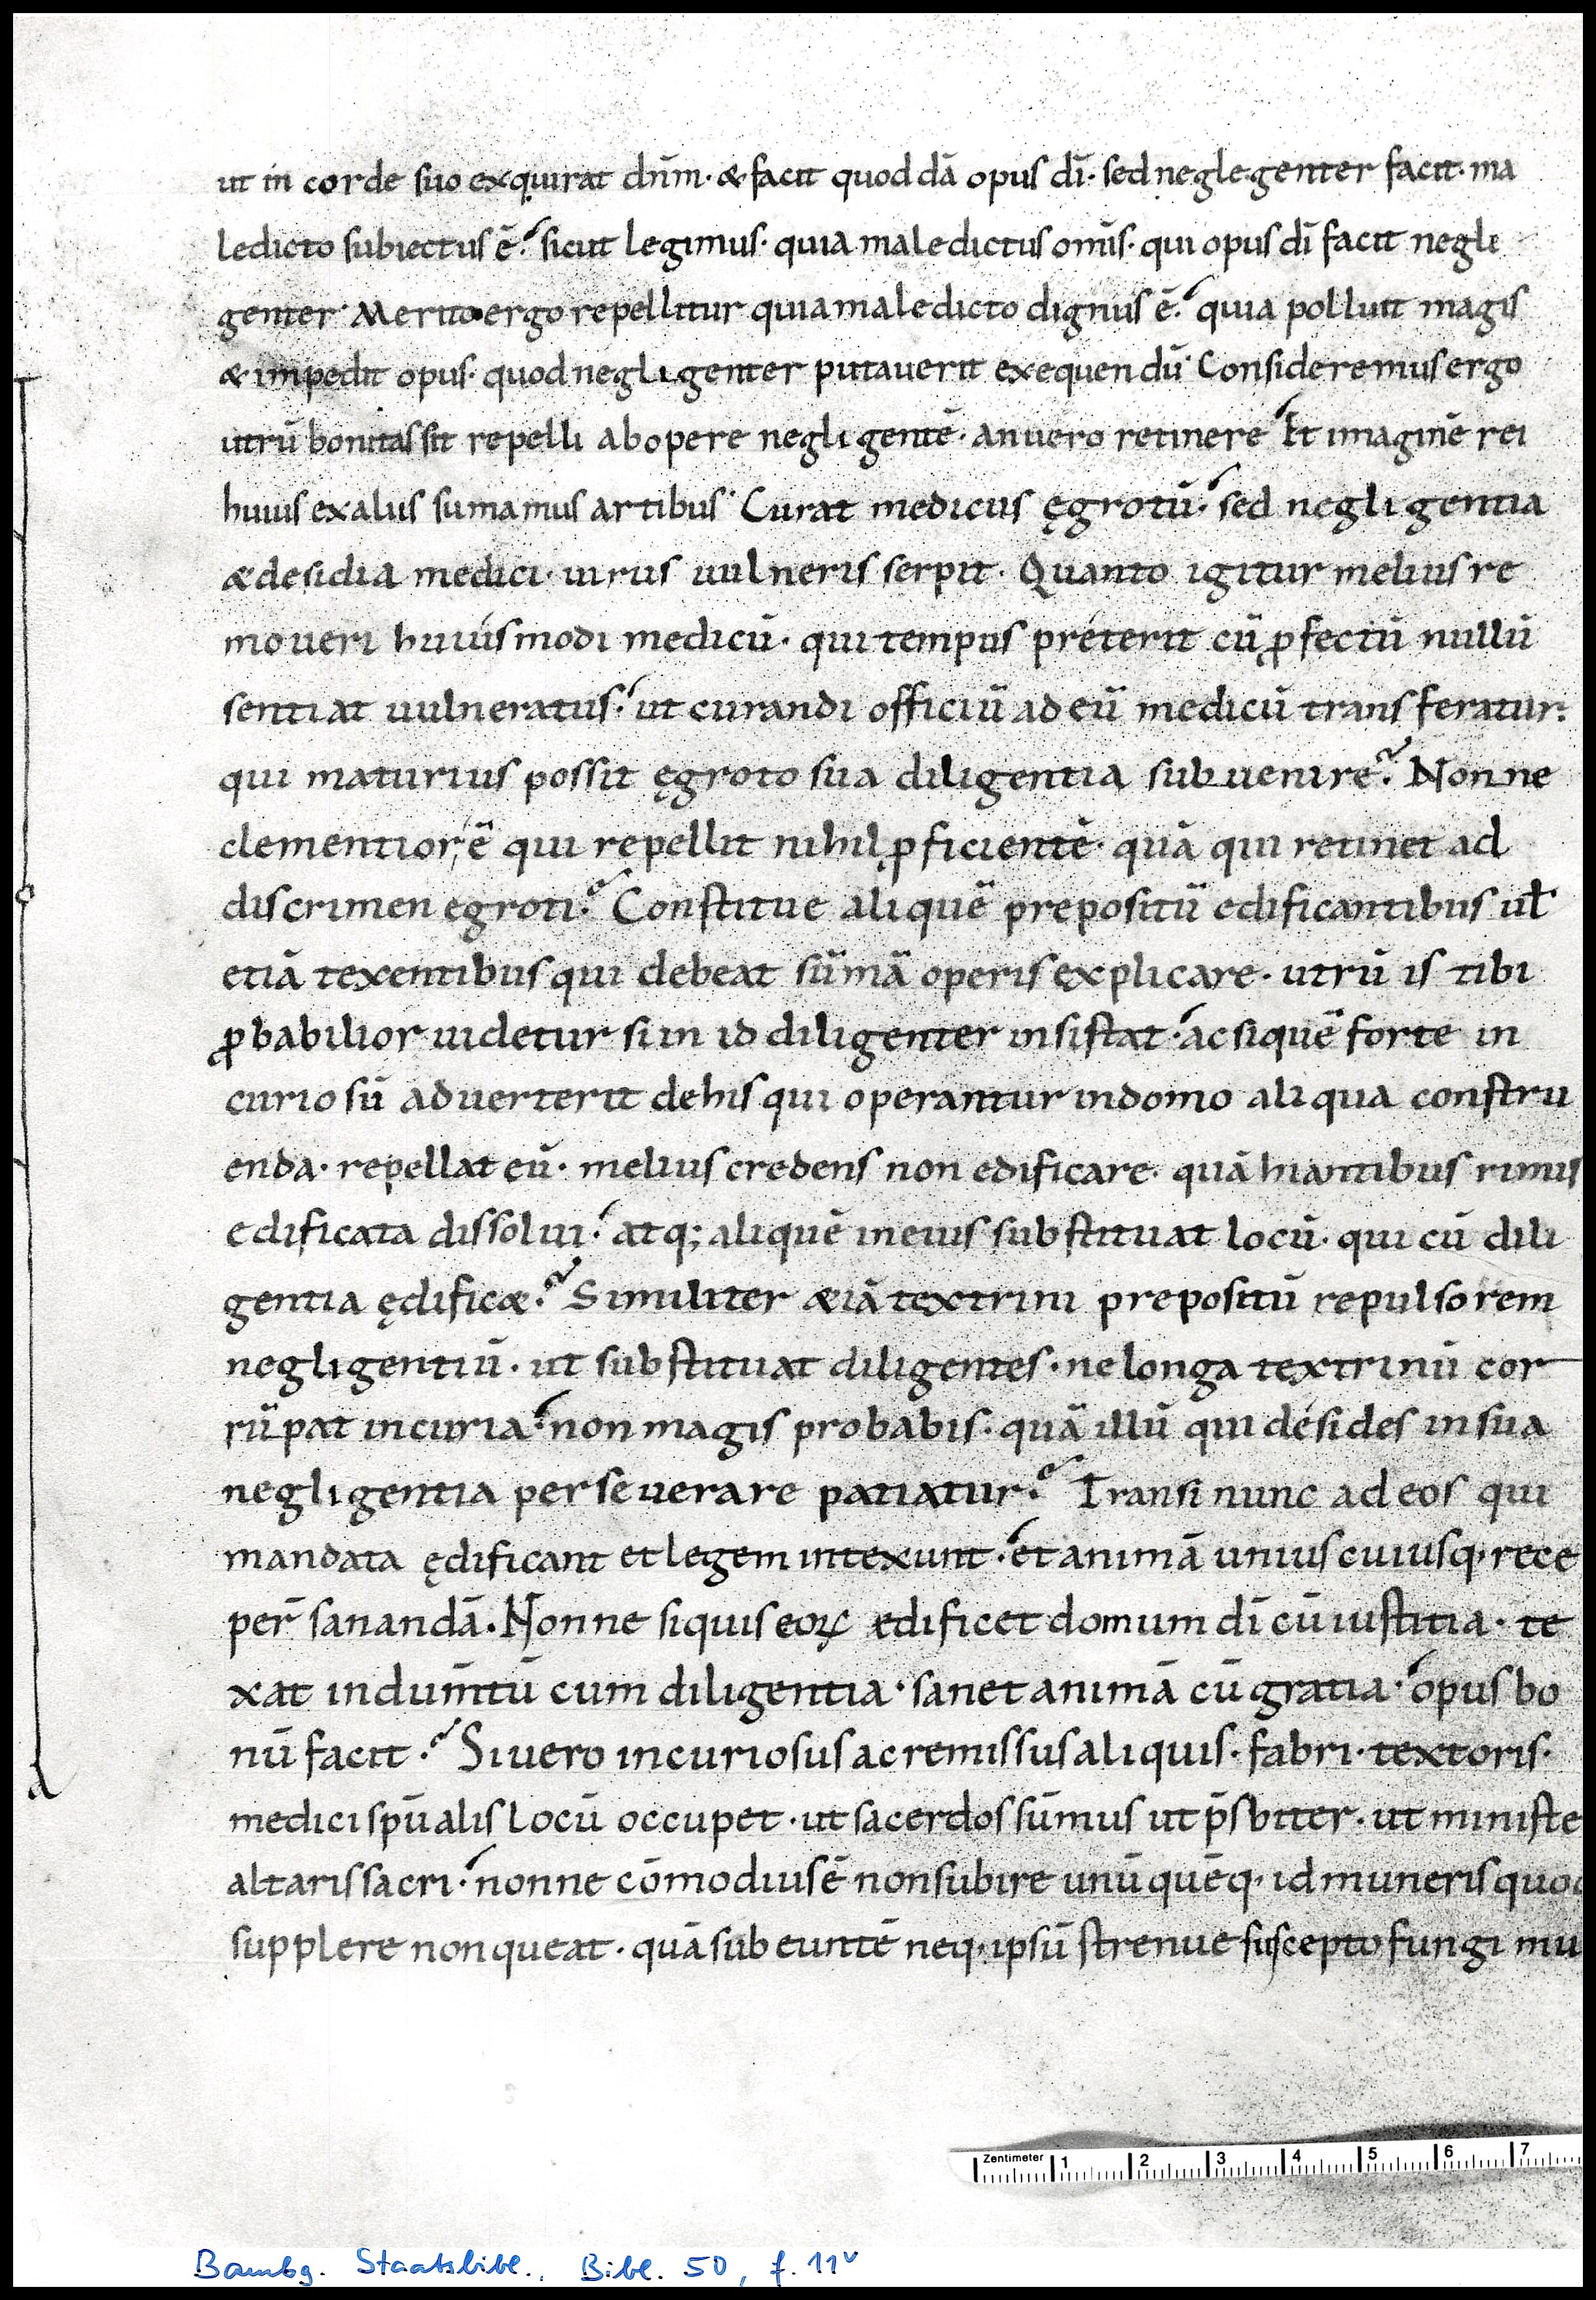 ut in corde suo exquirat dn̄m · & facit quoddā opus dī · sed neglegenter facit · ma
ledicto subiectus ē · sicut legimus · quia maledictus omīs · qui opus dī facit negli
genter · Merito ergo repellitur quia maledicto dignus ē · quia polluit magis
& impedit opus · quod negligenter putauerit exequendū · Consideremus ergo
utrū bonitas sit repelli ab opere negligentē · an uero retinere Et imaginē rei
huius ex aliis sumamus artibus · Curat medicus ęgrotū · sed negligentia
& desidia medici · uirus uulneris serpit · Quanto igitur melius re
moueri huiusmodi medicū · qui tempus preterit cū ꝓfectū nullū
sentiat uulneratus · ut curandi officiū ad eū medicū transferatur ·
qui maturius possit ęgroto sua diligentia subuenire? Nonne
clementior ē qui repellit nihil ꝓficientē · quā qui retinet ad
discrimen egroti? Constitue aliquē prepositū edificantibus ul̄
etiā texentibus qui debeat sūmā operis explicare · utrū is tibi
ꝓbabilior uidetur si in id diligenter insistat · ac siquē forte in
curiosū aduerterit de his qui operantur in domo aliqua constru
enda · repellat eū · melius credens non edificare · quā hiantibus rimis
edificata dissolui · atq; aliquē in eius substituat locū · qui cū dili
gentia ędific&? Similiter &iā textrini prepositū repulsorem
negligentiū · ut substituat diligentes · ne longa textrinū cor
rūpat incuria · non magis probabis · quā illū qui désides in sua
negligentia perseuerare patiatur? Transi nunc ad eos qui
mandata ędificant et legem intexunt · et animā uniuscuiusq· rece
per̄ sanandā · Nonne siquis eoꝝ edificet domum dī cū iustitia · te
xat indum̄tū cum diligentia · sanet animā cū gratia · opus bo
nū facit? Si uero incuriosus ac remissus aliquis · fabri · textoris ·
medici spūalis locū occupet · ut sacerdos sūmus ut p̄sbiter · ut ministe
altaris sacri · nonne cōmodius ē non subire unū quēq· id muneris quod
supplere non queat · quā subeuntē neq· ipsū strenue suscepto fungi mu
Zentimeter 1 2 3 4 5 6 7
Bambg. Staatsbibl., Bibl. 50, f. 11v